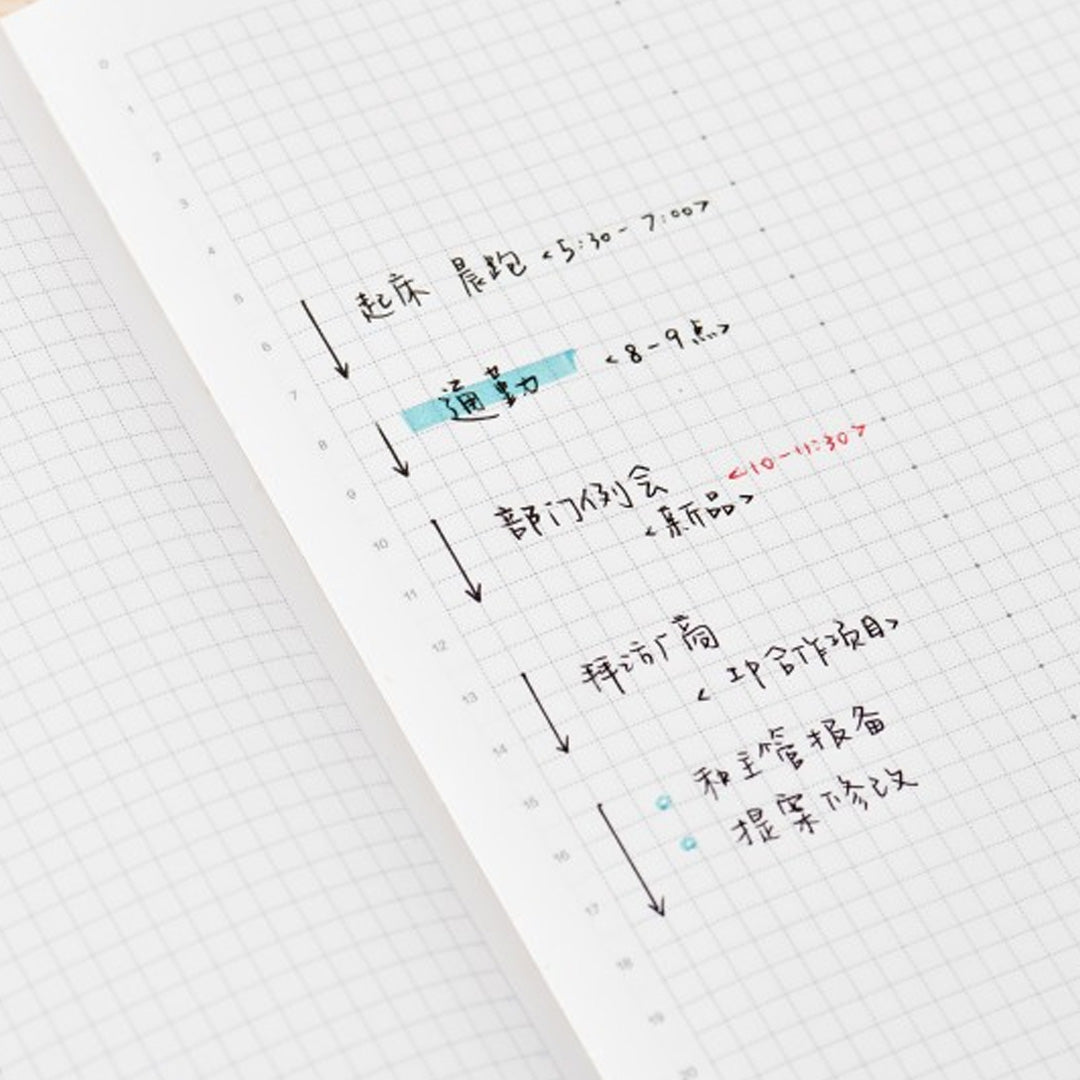 0
1
2
3
4
5
6
7
8
9
10
11
12
13
14
15
16
17
18
19
20
起床 晨跑 <5:30-7:00>
通勤 <8-9点>
部门例会 <10-11:30>
<新品>
拜访厂商
<IP合作项目>
和主管报备
提案修改